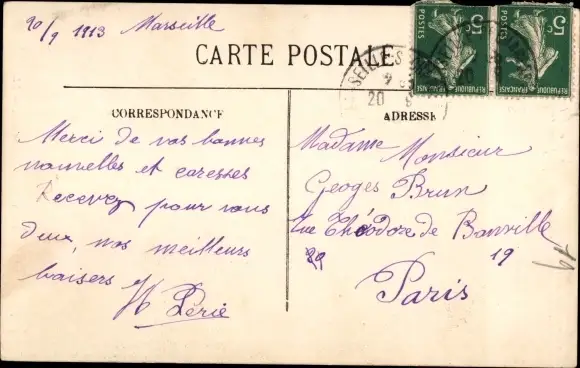 20/9 1913 Marseille
CARTE POSTALE
5c
POSTES
REPUBLIQUE FRANÇAISE
5c
POSTES
REPUBLIQUE FRANÇAISE
MARSEILLE
20 9
CORRESPONDANCE
ADRESSE
Merci de vos bonnes
nouvelles et caresses
Recevez pour vous
deux, nos meilleurs
baisers
Madame Monsieur
Geoges Brun
rue Théodore de Banville
19
Paris